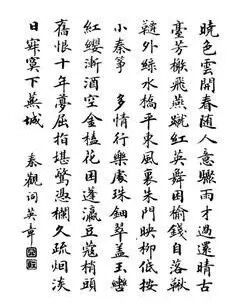 曉色雲開春随人意驟雨才過還晴古
臺芳榭飛燕蹴紅英舞困榆錢自落鞦
韆外綠水橋平東風裏朱門映柳低按
小秦箏 多情行樂處珠鈿翠蓋玉轡
紅纓漸酒空金榼花困蓬瀛豆蔻梢頭
舊恨十年夢屈指堪驚憑欄久疏烟淡
日寂寞下蕪城
秦觀词英章